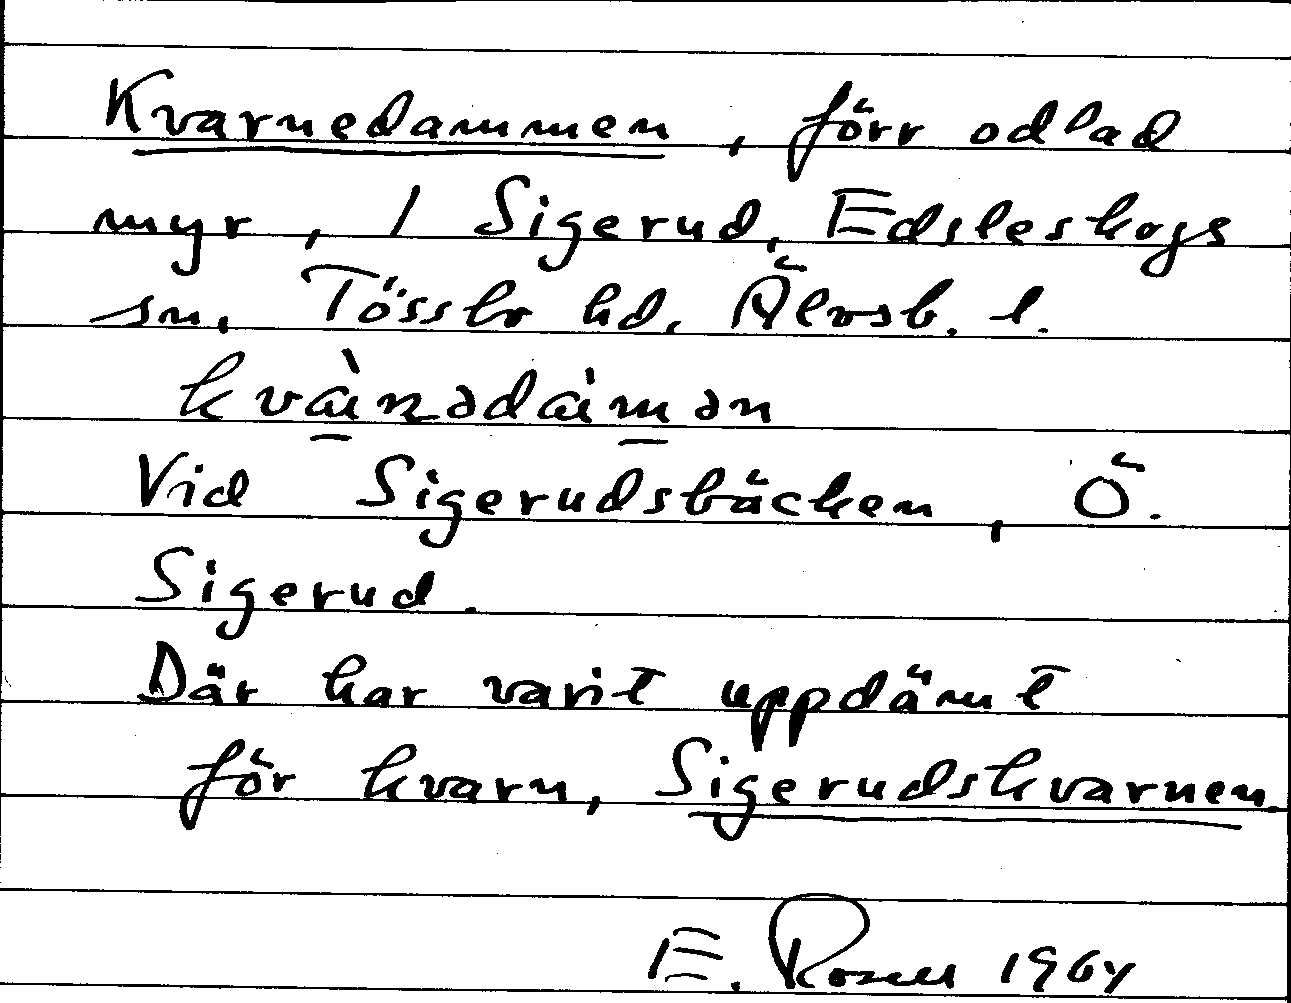 Kvarnedammen, förr odlad
myr, 1 Sigerud, Edsleskogs
sn, Tössbo hd, Älvsb. l.
Vid Sigerudsbäcken, Ö.
Sigerud.
Där har varit uppdämt
för kvarn, Sigerudskvarnen.
E. 1964